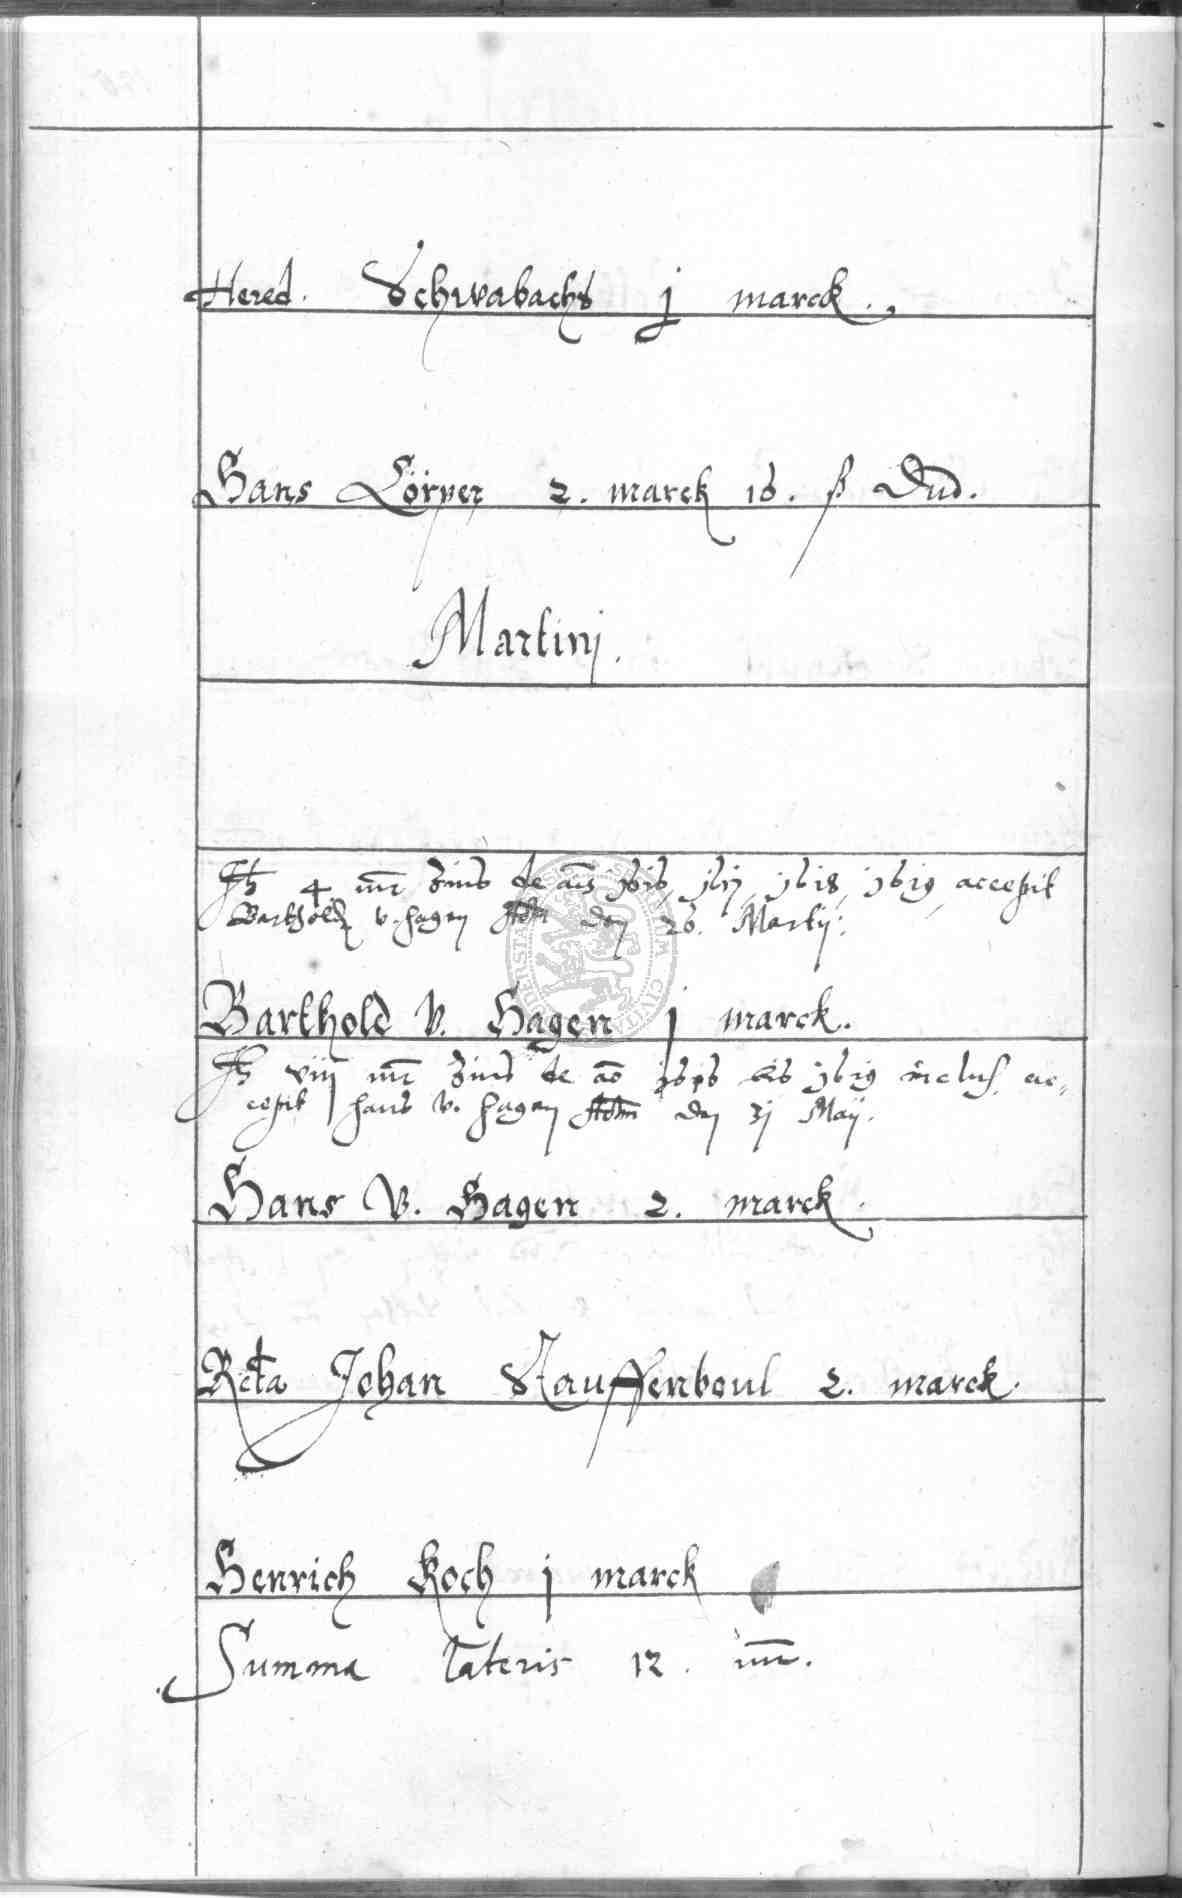 Hered. Schwabachs j marck.
Hans Körper 2. marck 16. ß Dud.
Martinj.
4 mr Zins de ais 1616, 1617, 1618, 1619 accepit
Barthold v. Hagen den 26. Martij.
Barthold V. Hagen j marck.
viij mr Zins de ao 1616 bis 1619 inclus. ac=
cepit Hans v. Hagen den 31 Maij.
Hans V. Hagen 2. marck.
Rcta Johan Stauffenboul 2. marck.
Henrich Koch j marck
Summa lateris 12. mr.